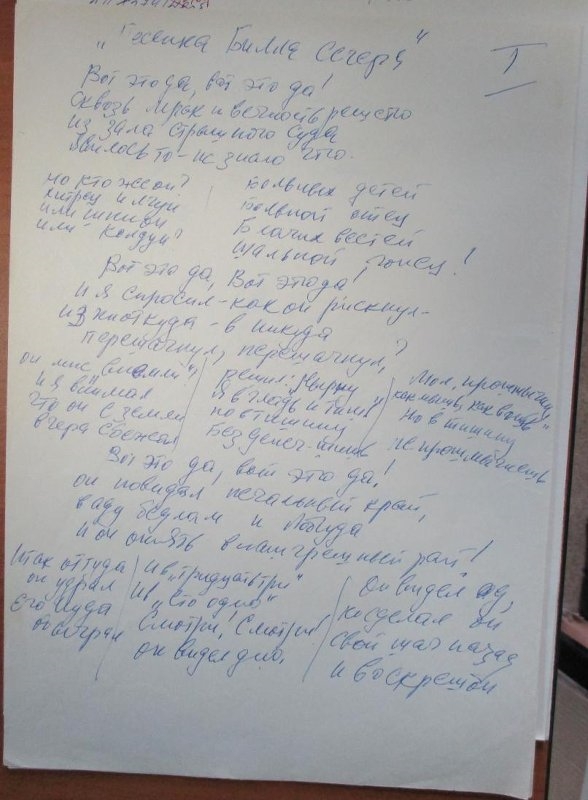 "Песенка Билла Сегера"
I
Вот это да, вот это да!
Сквозь мрак и вечность решето
Из зала Страшного Суда
Явилось то - не знаю что.
Но кто же он?
Хитрец и лгун
или шпион
или колдун?
Больных детей
Больной отец
Благих вестей
Шальной гонец!
Вот это да, Вот это да!
И я спросил - как он рискнул -
Из ниоткуда - в никуда
Перешагнул, перешагнул?
он мне "внемли"
и я внимал
что он с земли
вчера сбежал
решил: "Нырну
Я в гладь и тишь"
но в тишину
Без денег - шиш
Мол, прошмыгну
как мышь, как вошь"
Но в тишину
не прошмыгнешь
Вот это да, вот это да!
он повидал печальный край,
в аду бедлам и лабуда
и он опять в наш грешный рай!
Итак оттуда
он удрал
его Иуда
обыграл
И в "тридцать три"
И в "Сто одно"
Смотри, Смотри!
он видел дно,
Он видел ад,
но сделал он
свой шаг назад
И воскрешен